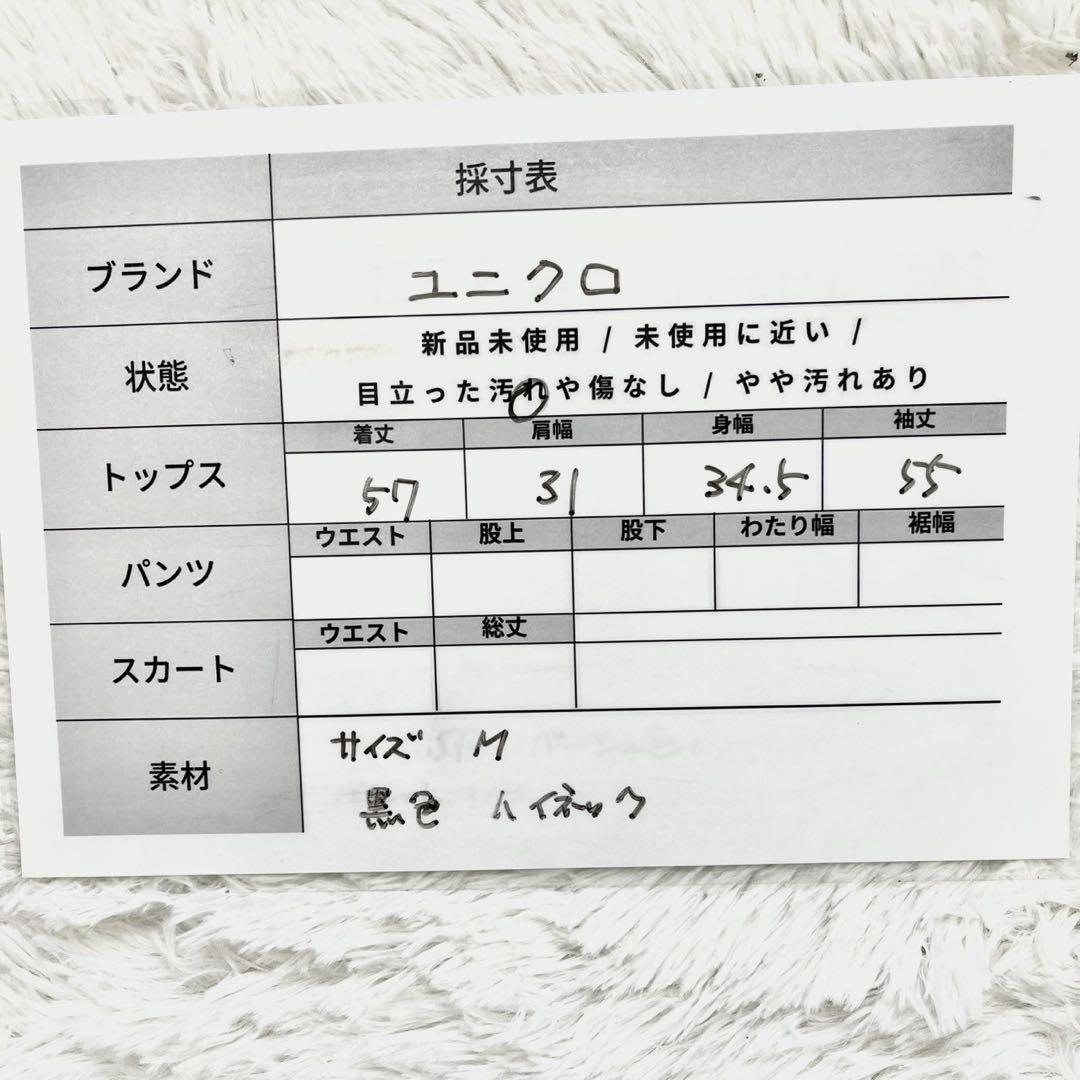 採寸表
ブランド ユニクロ
状態 新品未使用 / 未使用に近い /
目立った汚れや傷なし / やや汚れあり
トップス 着丈 肩幅 身幅 袖丈
57 31 34.5 55
パンツ ウエスト 股上 股下 わたり幅 裾幅
スカート ウエスト 総丈
素材 サイズ M
黒色 ハイネック